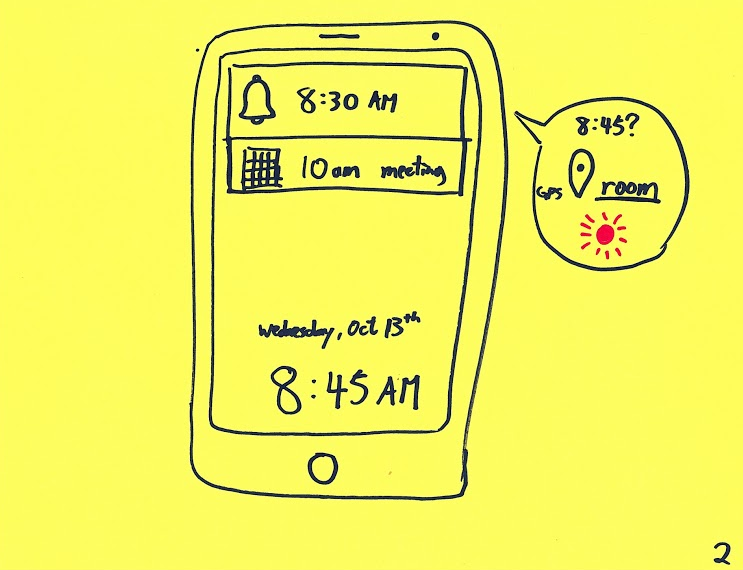 8:30 AM
10am meeting
Wednesday, Oct 13th
8:45 AM
8:45?
GPS room
2